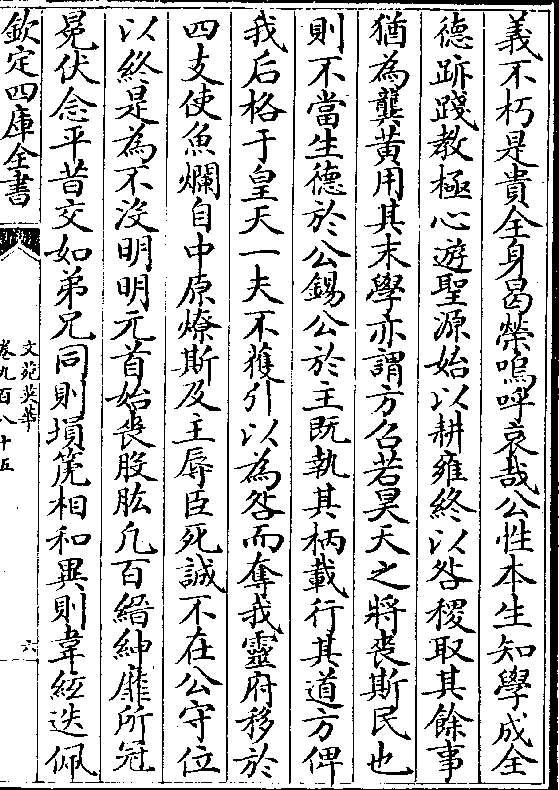 義不朽是貴全身曷榮嗚呼哀哉公性本生知學成全
德跡踐教極心遊聖源始以耕雍終以咎稷取其餘事
猶為龔黃用其末學亦謂方召若昊天之將喪斯民也
則不當生德於公錫公於主既執其柄載行其道方俾
我后格于皇天一夫不獲引以為咎而奪我靈府移於
四支使魚爛自中原燎斯及主辱臣死誠不在公守位
以終是為不沒明明元首始喪股肱凡百縉紳靡所冠
冕伏念平昔交如弟兄同則塤箎相和異則韋絃迭佩
欽定四庫全書
文苑英華
卷九百八十五
六